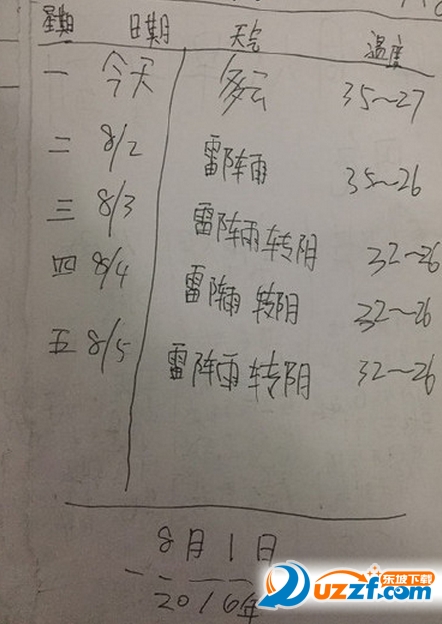 星期 日期 天气 温度
一 今天 多云 35~27
二 8/2 雷阵雨 35~26
三 8/3 雷阵雨转阴 32~26
四 8/4 雷阵雨转阴 32~26
五 8/5 雷阵雨转阴 32~26
8月1日
2016年
东坡下载
uzzf.com